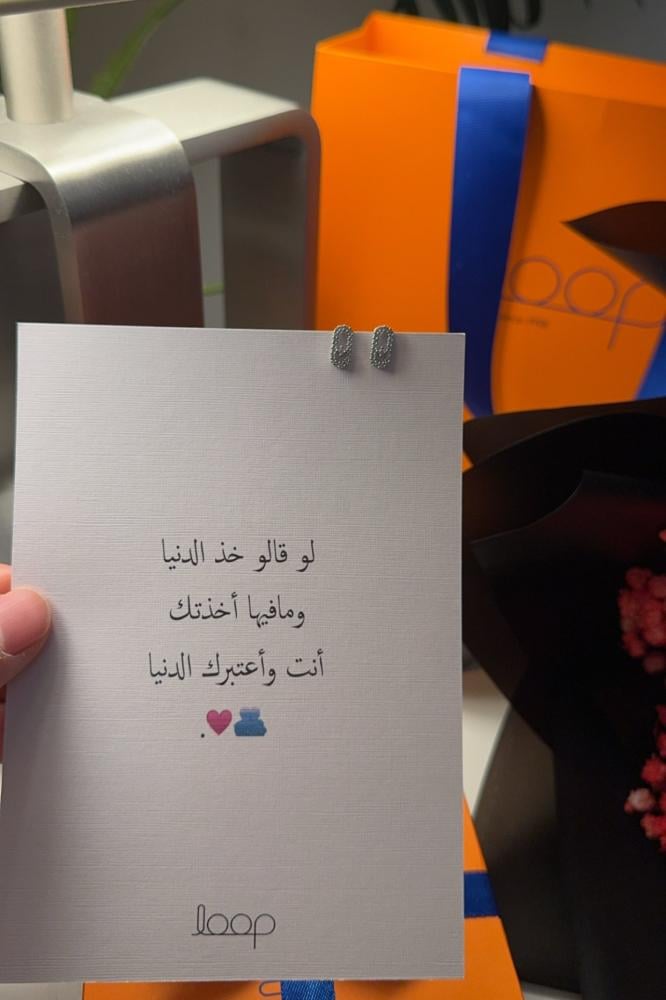 loop
لو قالو خذ الدنيا
ومافيها أخذتك
أنت وأعتبرك الدنيا
🫂♥️.
loop